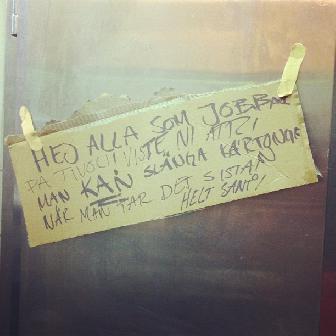 HEJ ALLA SOM JOBBAR
PÅ TIVOLI! VISTE NI ATT,
MAN KAN SLÄNGA KARTONGEN
NÄR MAN TAR DET SISTA?
HELT SANT!